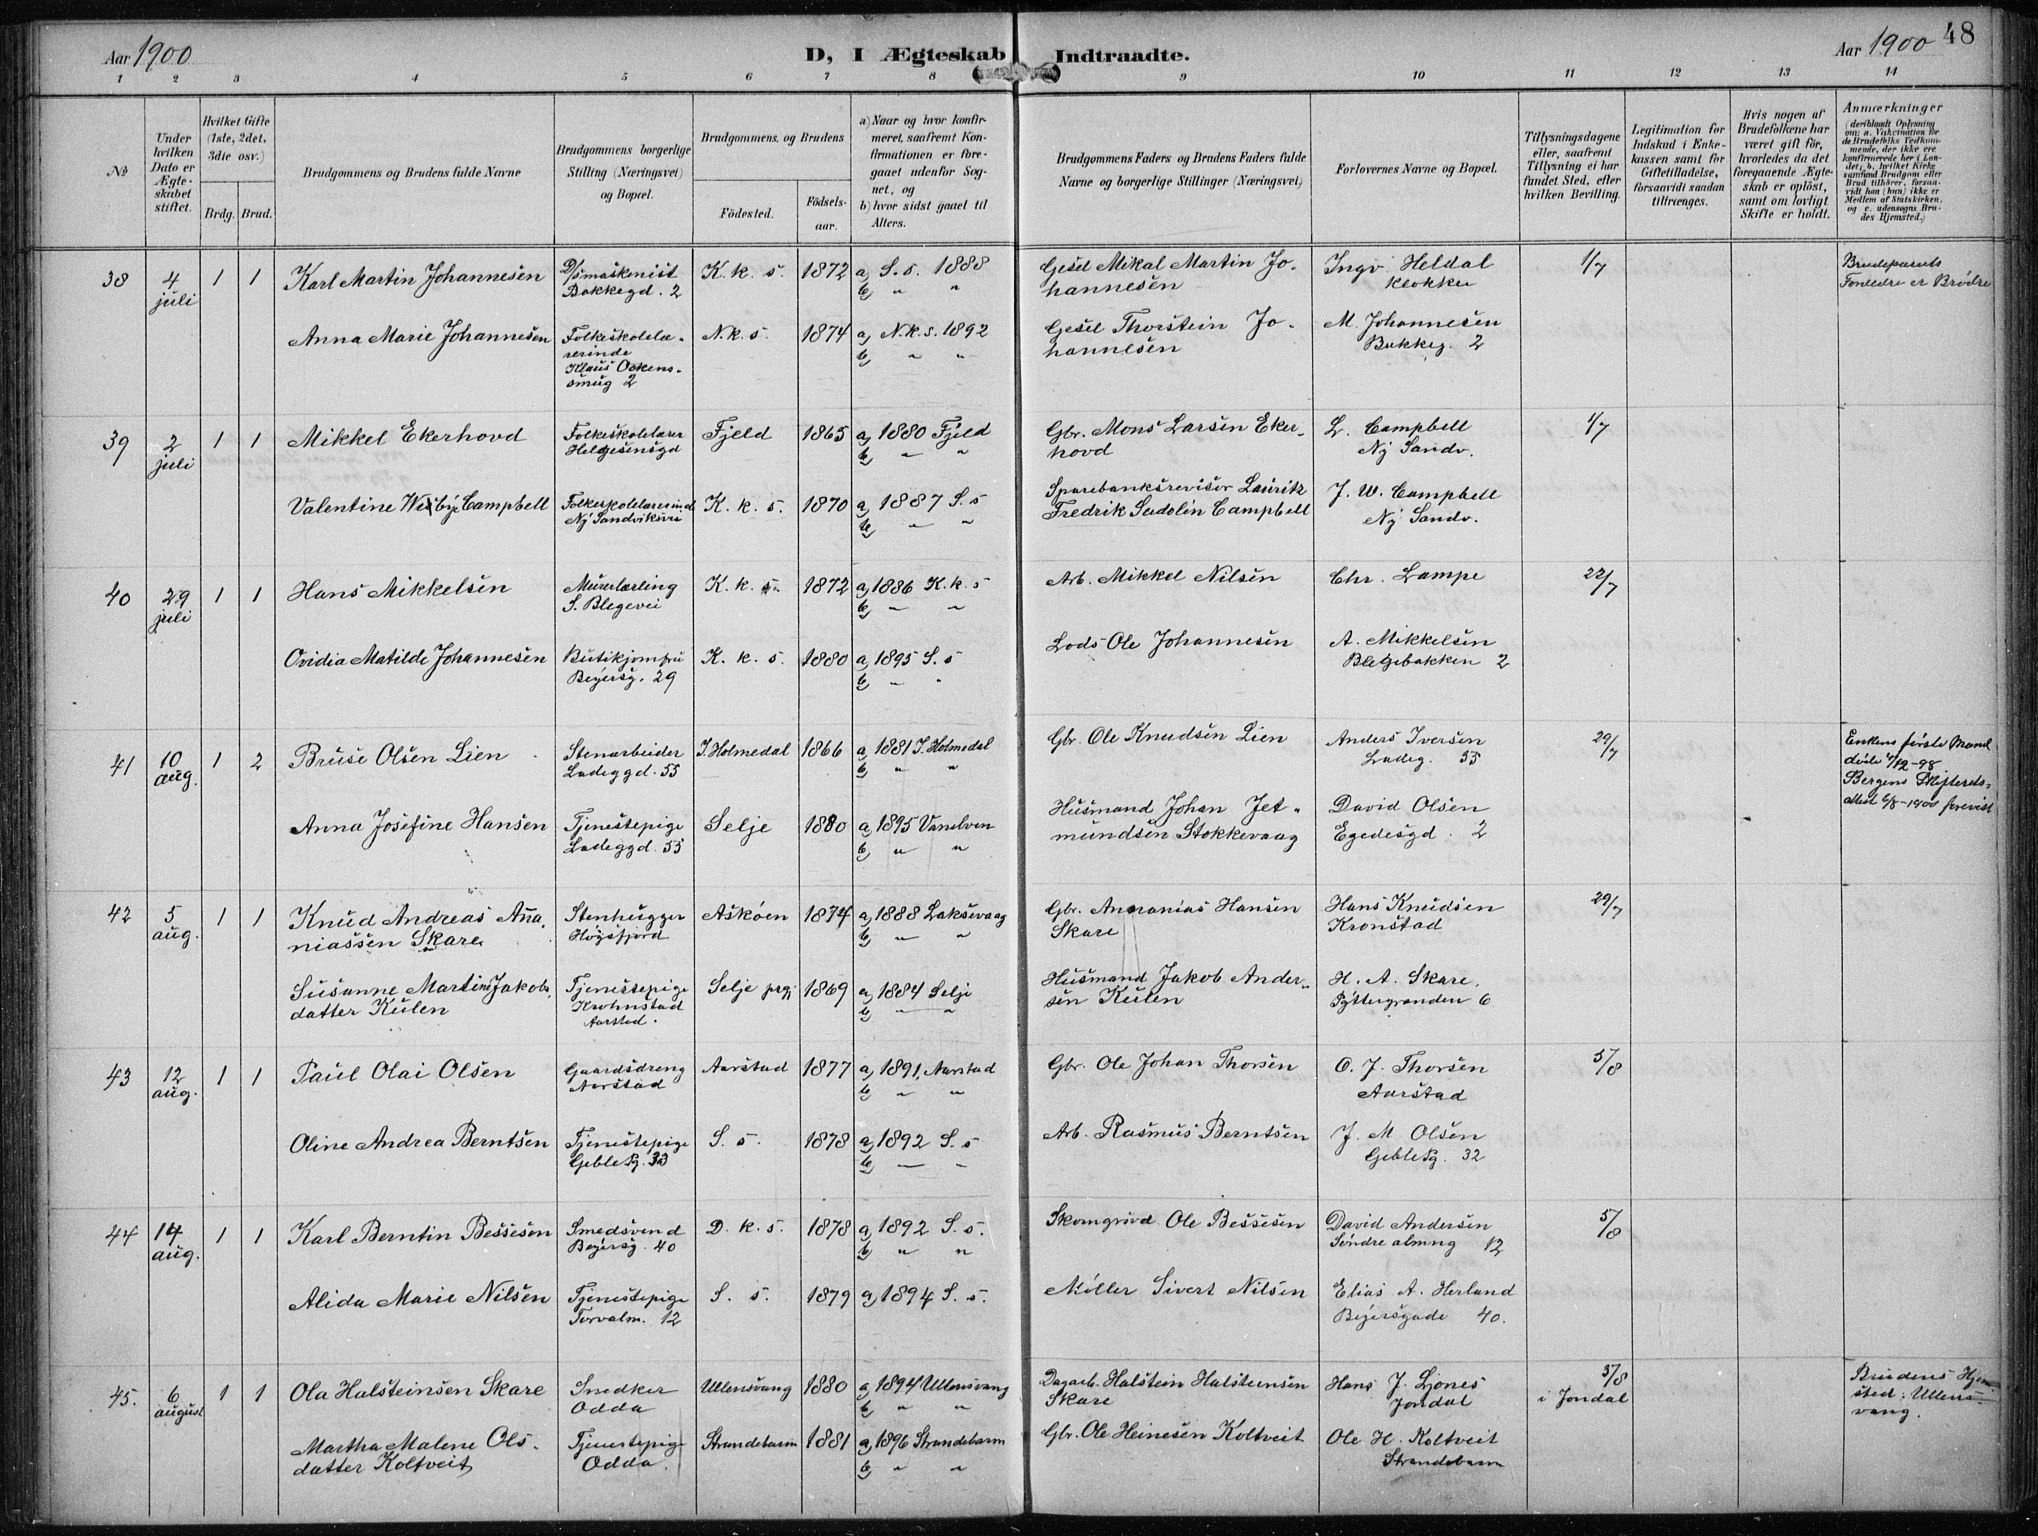 48
Aar 1900
D, I Ægteskab Indtraadte.
Aar 1900
1 2 3 4 5 6 7 8 9 10 11 12 13 14
No
Under hvilken Dato er Ægteskabet stiftet.
Hvilket Gifte (1ste, 2det, 3die osv.)
Brdg. Brud.
Brudgommens og Brudens fulde Navne
Brudgommens borgerlige Stilling (Næringsvei) og Bopæl.
Brudgommens og Brudens
Födested.
Födselsaar.
a) Naar og hvor konfirmeret, saafremt Konfirmationen er foregaaet udenfor Sognet, og
b) hvor sidst gaaet til Alters.
Brudgommens Faders og Brudens Faders fulde Navne og borgerlige Stillinger (Næringsvei)
Forlovernes Navne og Bopæl.
Tillysningsdagene eller, saafremt Tillysning ei har fundet Sted, efter hvilken Bevilling.
Legitimation for Indskud i Enkekassen samt for Giftetilladelse, forsaavidt saadan tiltrænges.
Hvis nogen af Brudefolkene har været gift för, hvorledes da det foregaaende Ægteskab er oplöst, samt om lovligt Skifte er holdt.
Anmærkninger
(deriblandt Oplysning om: a. Vakcination for de Brudefolks Vedkommende, der ikke ere konfirmerede her i Landet; b. hvilket Kirkesamfund Brudgom eller Brud tilhörer, forsaavidt han (hun) ikke er Medlem af Statskirken, og c. udensogns Brudes Hjemsted.)
38 4 juli 1 1 Karl Martin Johannesen
D/smaskenist Bakkegd. 2
K. k. s. 1872 a) S. s. 1888
b) " "
Gesel Mikal Martin Johannesen
Ingv. Heldal Klokker
1/7
Brudeparets Forældre er Brödre
Anna Marie Johannesen
Folkeskolelærerinde Klaus Ockenssmug 2
N. k. s. 1874 a) N. k. s. 1892
b) " "
Gesel Thorstein Johannesen
M. Johannesen Bakkeg. 2
39 2 juli 1 1 Mikkel Ekerhovd
Folkeskolelærer Helgesensgd
Fjeld 1865 a) 1880 Fjeld
b) " "
Gbr. Mons Larsen Ekerhovd
L. Campbell Ny Sandv.
1/7
Valentine Wisbye Campbell
Folkeskolelærerind Ny Sandviksvei
K. k. s. 1870 a) 1887 S. s
b) " "
Sparebanksrevisor Lauritz Fredrik Sadolin Campbell
J. W. Campbell Ny Sandv.
40 29 juli 1 1 Hans Mikkelsen
Murerlærling S. Blegevei
K. k. s. 1872 a) 1886 K. k. s
b) " "
Arb. Mikkel Nilsen
Chr. Lampe
22/7
Ovidia Matilde Johannesen
Butikjomfru Beyersg. 29
K. k. s. 1880 a) 1895 S. s
b) " "
Lods Ole Johannesen
A. Mikkelsen Blegebakken 2
41 10 aug. 1 2 Brusi Olsen Lien
Stenarbeider Ladeggd. 55
I. Holmedal 1866 a) 1881 I. Holmedal
b) " "
Gbr. Ole Knudsen Lien
Anders Iversen Ladeg. 55
29/7
Enkens første Mand døde 4/12-98 Bergens Skifterets-attest 6/8-1900 forevist
Anna Josefine Hansen
Tjenestepige Ladeggd. 55
Selje 1880 a) 1895 Vanelven
b) " "
Husmand Johan Jetmundsen Stokkevaag
David Olsen Egedesgd. 2
42 5 aug. 1 1 Knud Andreas Ananiassen Skare
Stenhugger Høgsfjord
Askøen 1874 a) 1888 Laksevaag
b) " "
Gbr. Annanias Hansen Skare
Hans Knudsen Kronstad
29/7
Susanne Martine Jakobsdatter Kulen
Tjenestepige Krohnstad Aarstad.
Selje prgj 1869 a) 1884 Selje
b) " "
Husmand Jakob Andersen Kulen
H. A. Skare. Pyttergranden 6
43 12 aug. 1 1 Paul Olai Olsen
Gaardsdreng Aarstad
Aarstad 1877 a) 1891, Aarstad
b) " "
Gbr. Ole Johan Thorsen
O. J. Thorsen Aarstad
5/8
Oline Andrea Berntsen
Tjenestepige Geblesg. 32
S. s. 1878 a) 1892 S. s
b) " "
Arb. Rasmus Berntsen
J. M Olsen Geblesg. 32
44 14 aug. 1 1 Karl Berntin Bessesen
Smedsvend Beyersg. 40
D. k. s. 1878 a) 1892 S. s.
b) " "
Skomgrsvd. Ole Bessesen
David Andersen Søndre almng 12
5/8
Alida Marie Nilsen
Tjenestepige Torvalm. 12
S. s. 1879 a) 1894 S. s.
Møller Sivert Nilsen
Elias A. Herland Beyersgade 40.
45. 6 august 1 1 Ola Halsteinsen Skare
Snedker Odda
Ullensvang 1880 a) 1894 Ullensvang
b) " "
Dagarb. Halstein Halsteinsen Skare
Hans J. Ljones Jondal
5/8 i Jondal
Brudens Hjemsted: Ullensvang.
Martha Malene Olsdatter Koltveit
Tjenestepige Odda.
Strandebarm 1881 a) 1896 Strandebarm
b) " "
Gbr. Ole Heinesen Koltveit
Ole H. Koltveit Strandebarm